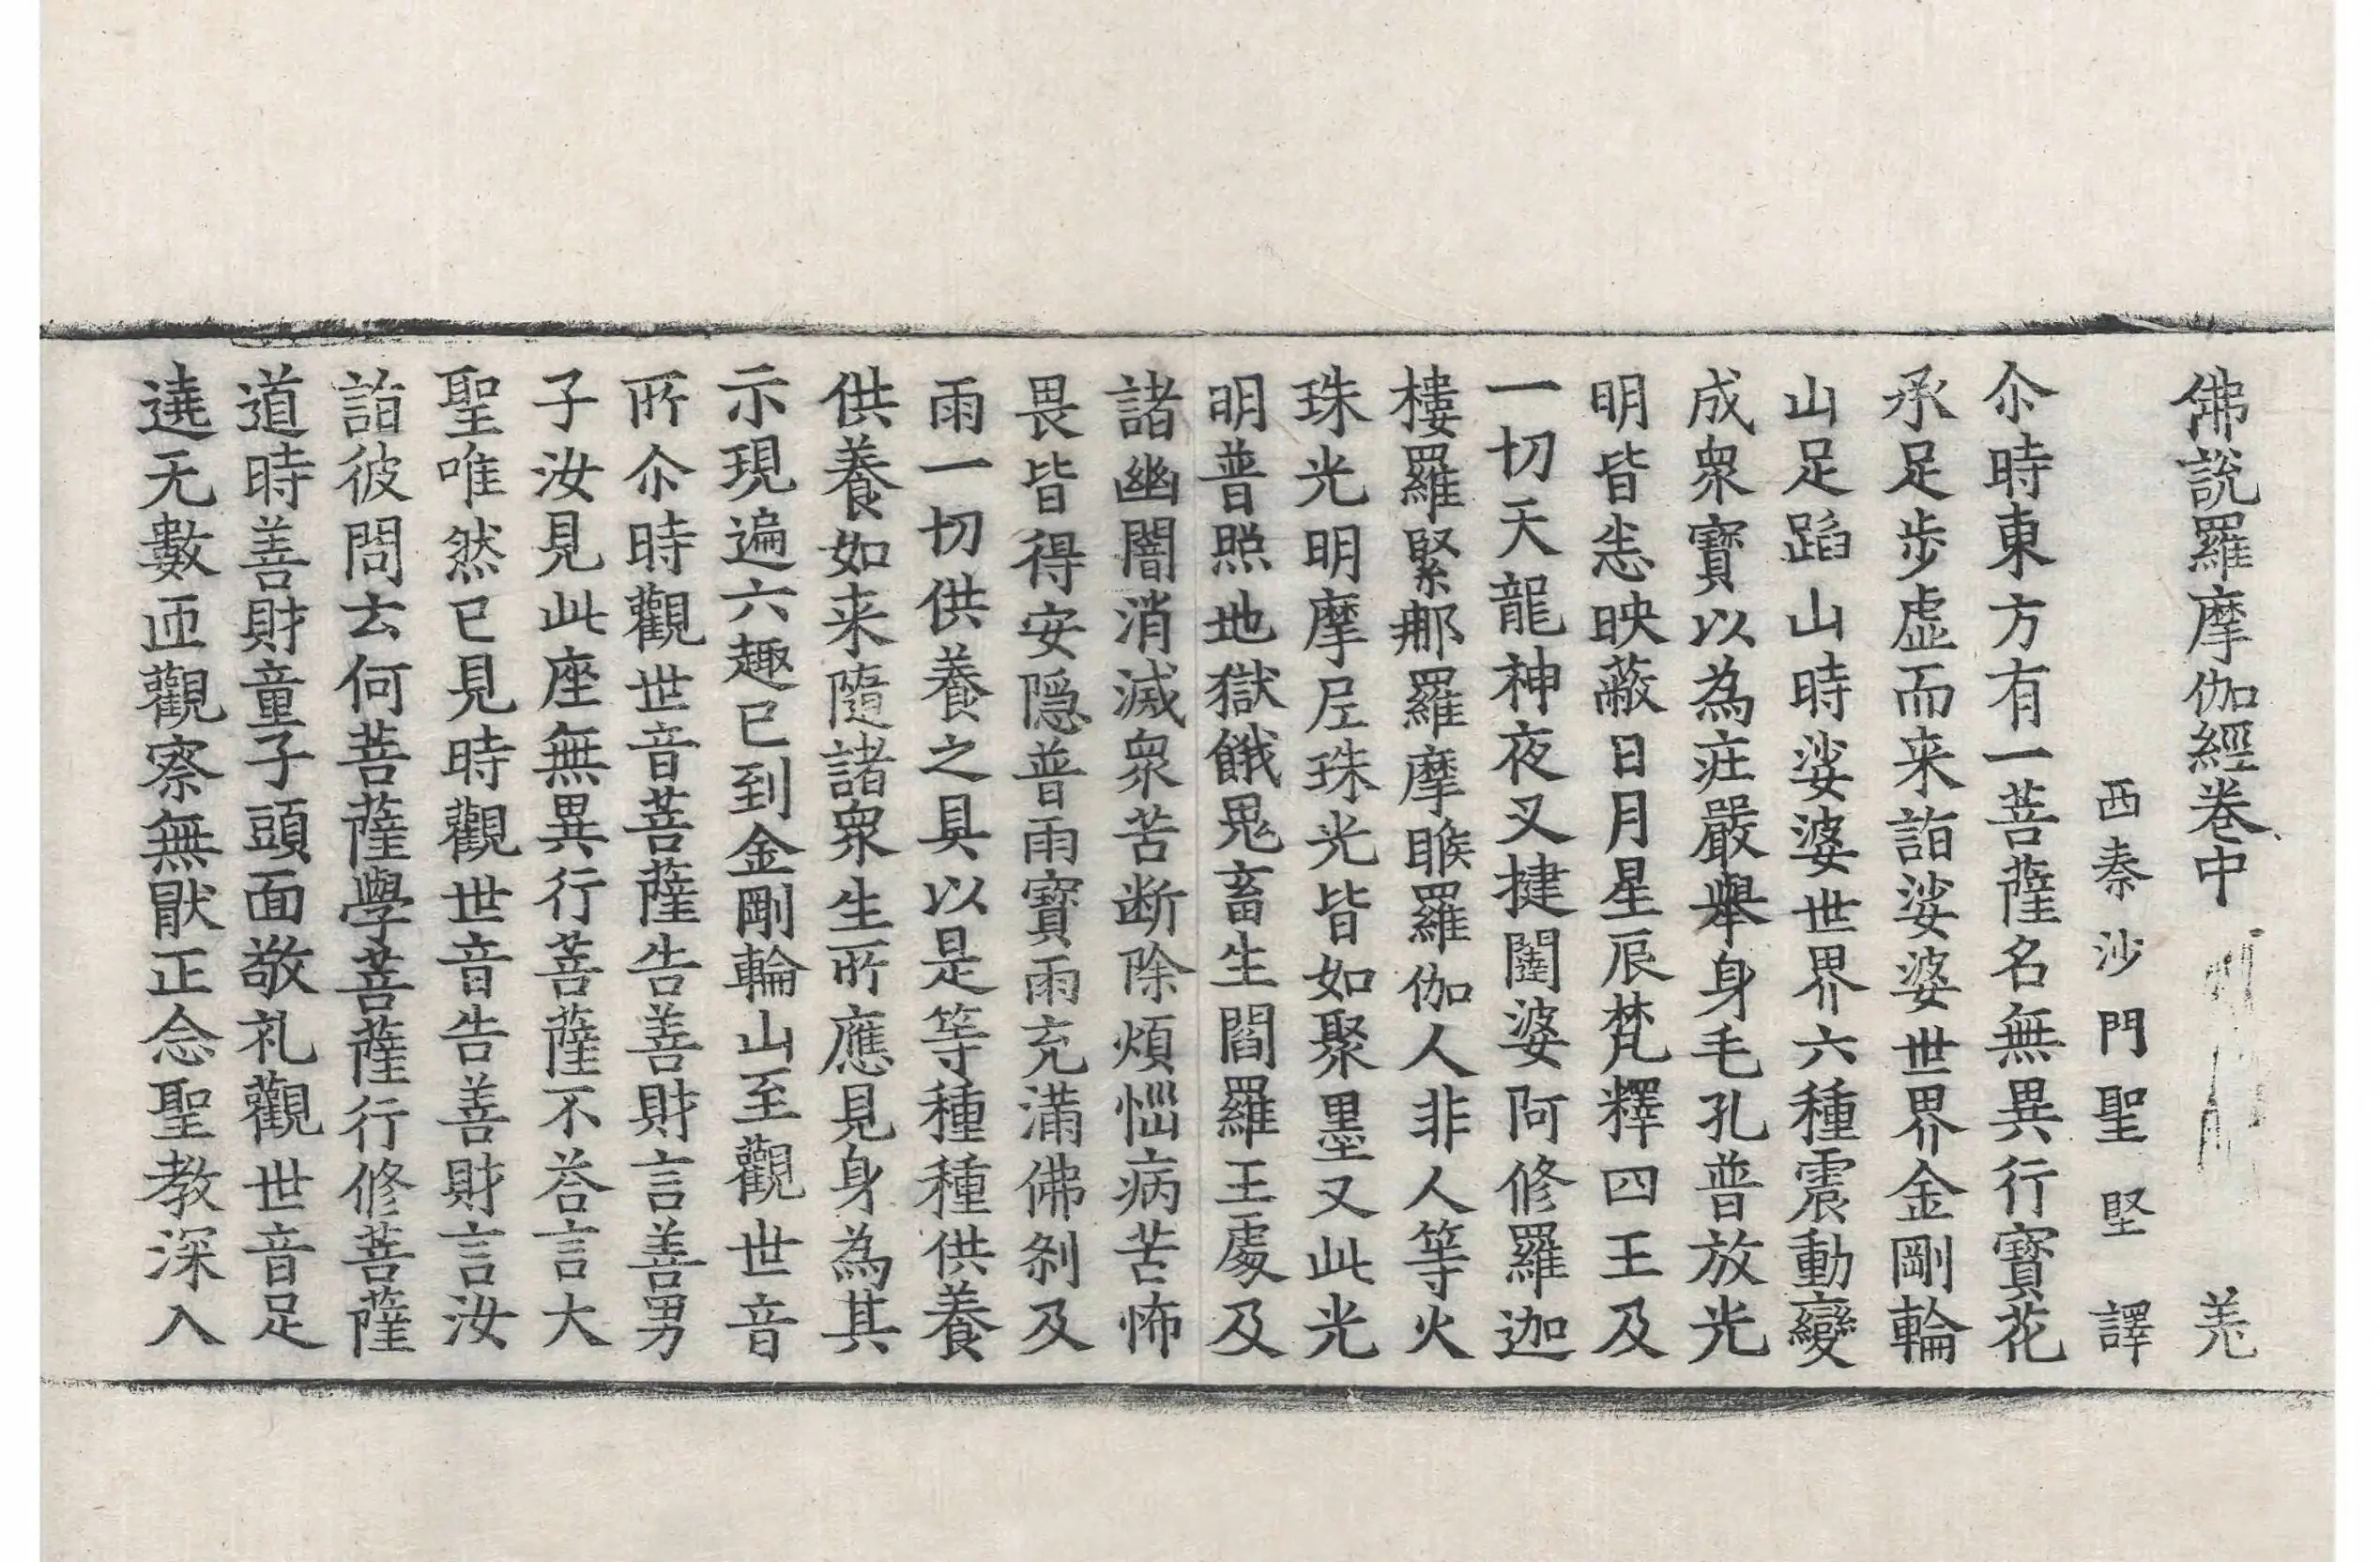 佛說羅摩伽經卷中 羌
西秦沙門聖堅 譯
尒時東方有一菩薩名無異行寶花
承足步虛而来詣娑婆世界金剛輪
山足蹈山時娑婆世界六種震動變
成衆寶以為庄嚴舉身毛孔普放光
明皆悉映蔽日月星辰梵釋四王及
一切天龍神夜叉揵闥婆阿修羅迦
樓羅緊那羅摩睺羅伽人非人等火
珠光明摩尼珠光皆如聚墨又此光
明普照地獄餓鬼畜生閻羅王處及
諸幽闇消滅衆苦断除煩惱病苦怖
畏皆得安隱普雨寶雨充滿佛剎及
雨一切供養之具以是等種種供養
供養如来隨諸衆生所應見身為其
示現遍六趣已到金剛輪山至觀世音
所尒時觀世音菩薩告善財言善男
子汝見此座無異行菩薩不荅言大
聖唯然已見時觀世音告善財言汝
詣彼問云何菩薩學菩薩行修菩薩
道時善財童子頭面敬礼觀世音足
遶无數匝觀察無猒正念聖教深入